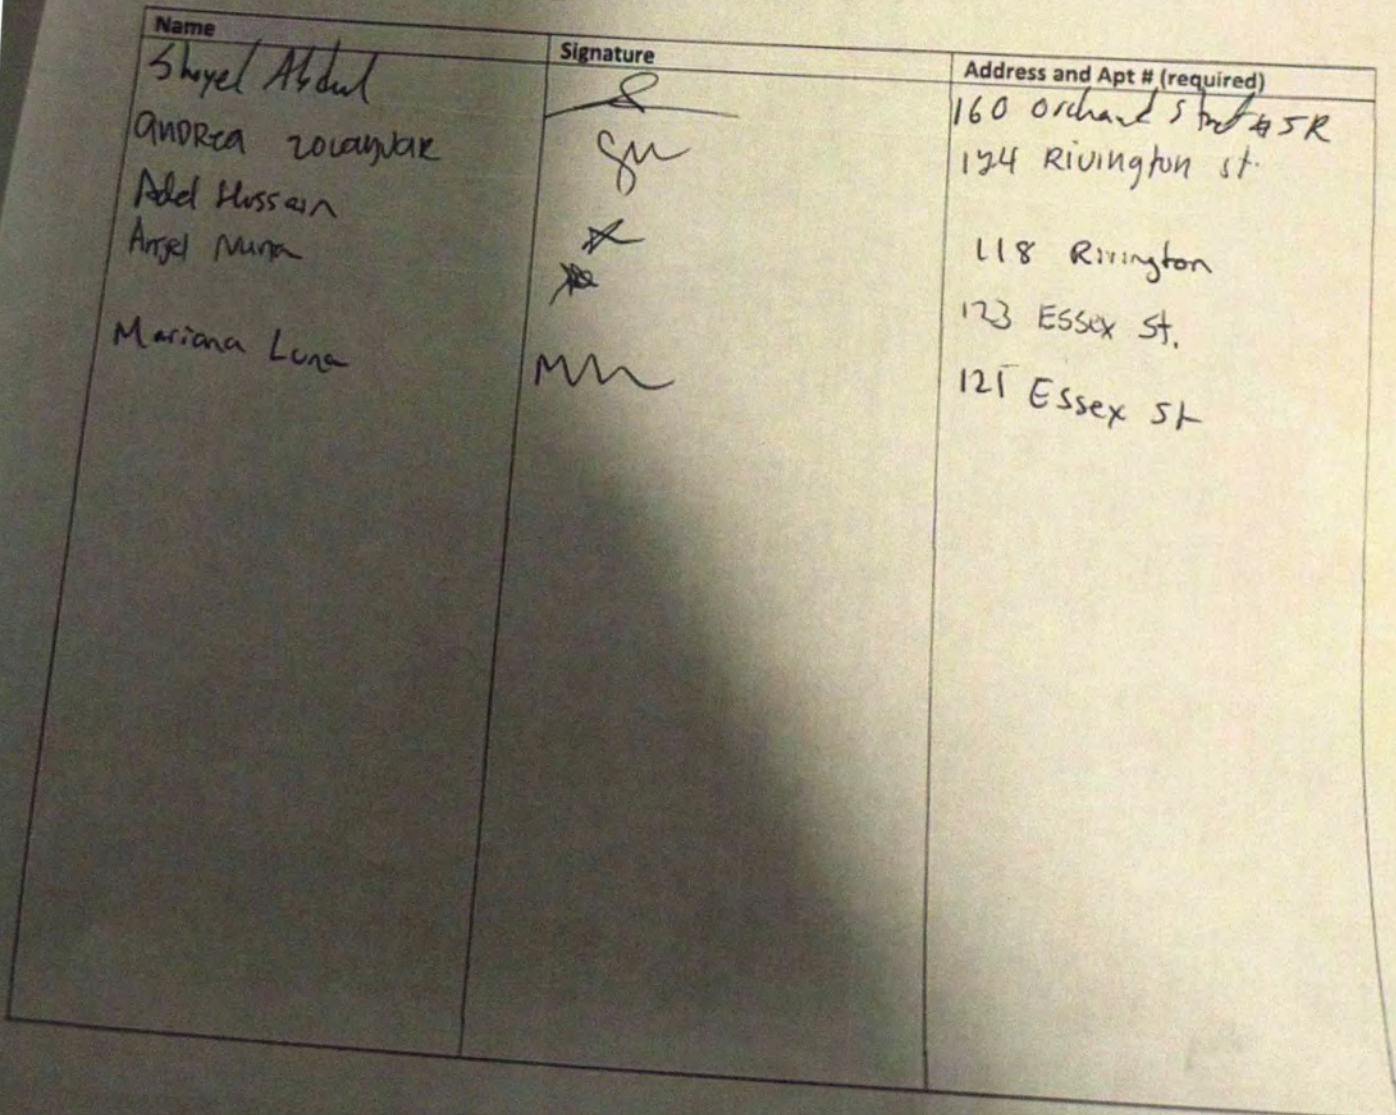 Name Signature Address and Apt # (required)
Shoyel Abdul 160 Orchard Street #5R
ANDREA 124 Rivington st.
Adel Hussain
Angel 118 Rivington
123 Essex St.
Mariana Luna 121 Essex St